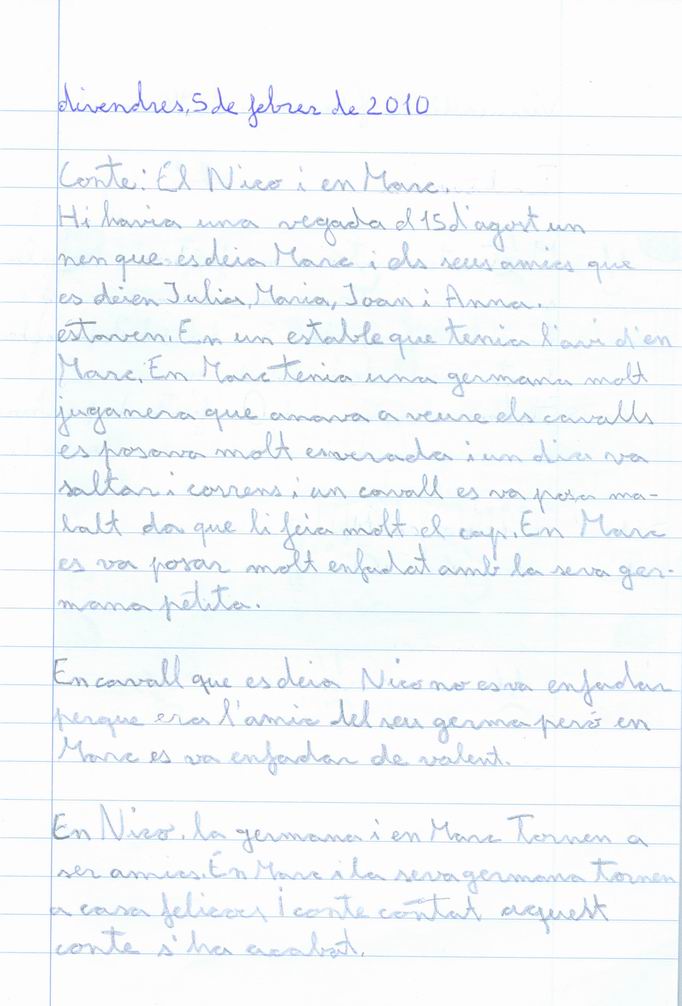 divendres, 5 de febrer de 2010
Conte: El Nico i en Marc.
Hi havia una vegada el 15 d'agost un
nen que es deia Marc i els seus amics que
es deien Julia, Maria, Joan i Anna.
estaven. En un estable que tenia l'avi d'en
Marc. En Marc tenia una germana molt
juganera que anava a veure els cavalls
es posava molt esverada i un dia va
saltar i correns i un cavall es va posa ma-
lalt da que li feia molt el cap. En Marc
es va posar molt enfadat amb la seva ger-
mana petita.
En cavall que es deia Nico no es va enfadar
perque era l'amic del seu germa peró en
Marc es va enfadar de valent.
En Nico, la germana i en Marc Tornen a
ser amics. En Marc i la seva germana tornen
a casa feliços i conte contat aquest
conte s'ha acabat.